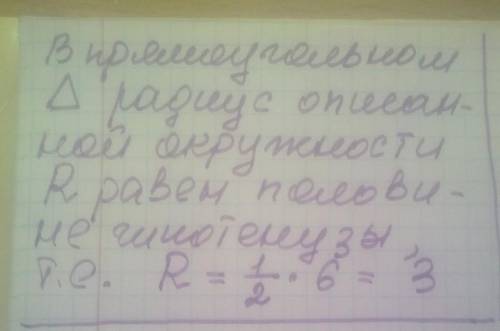 В прямоугольном
△ радиус описан-
ной окружности
R равен полови-
не гипотенузы,
т.е. R = 1/2 · 6 = 3